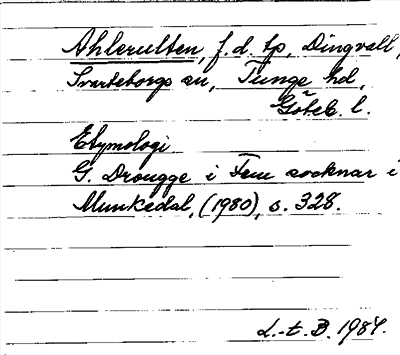 Ahlerulten, f.d. tp, Dingvall,
Svarteborgs sn, Tunge hd,
Göteb. l.
Etymologi
G. Drougge i Fem socknar i
Munkedal, (1980), s. 328.
L.-t. B. 1984.